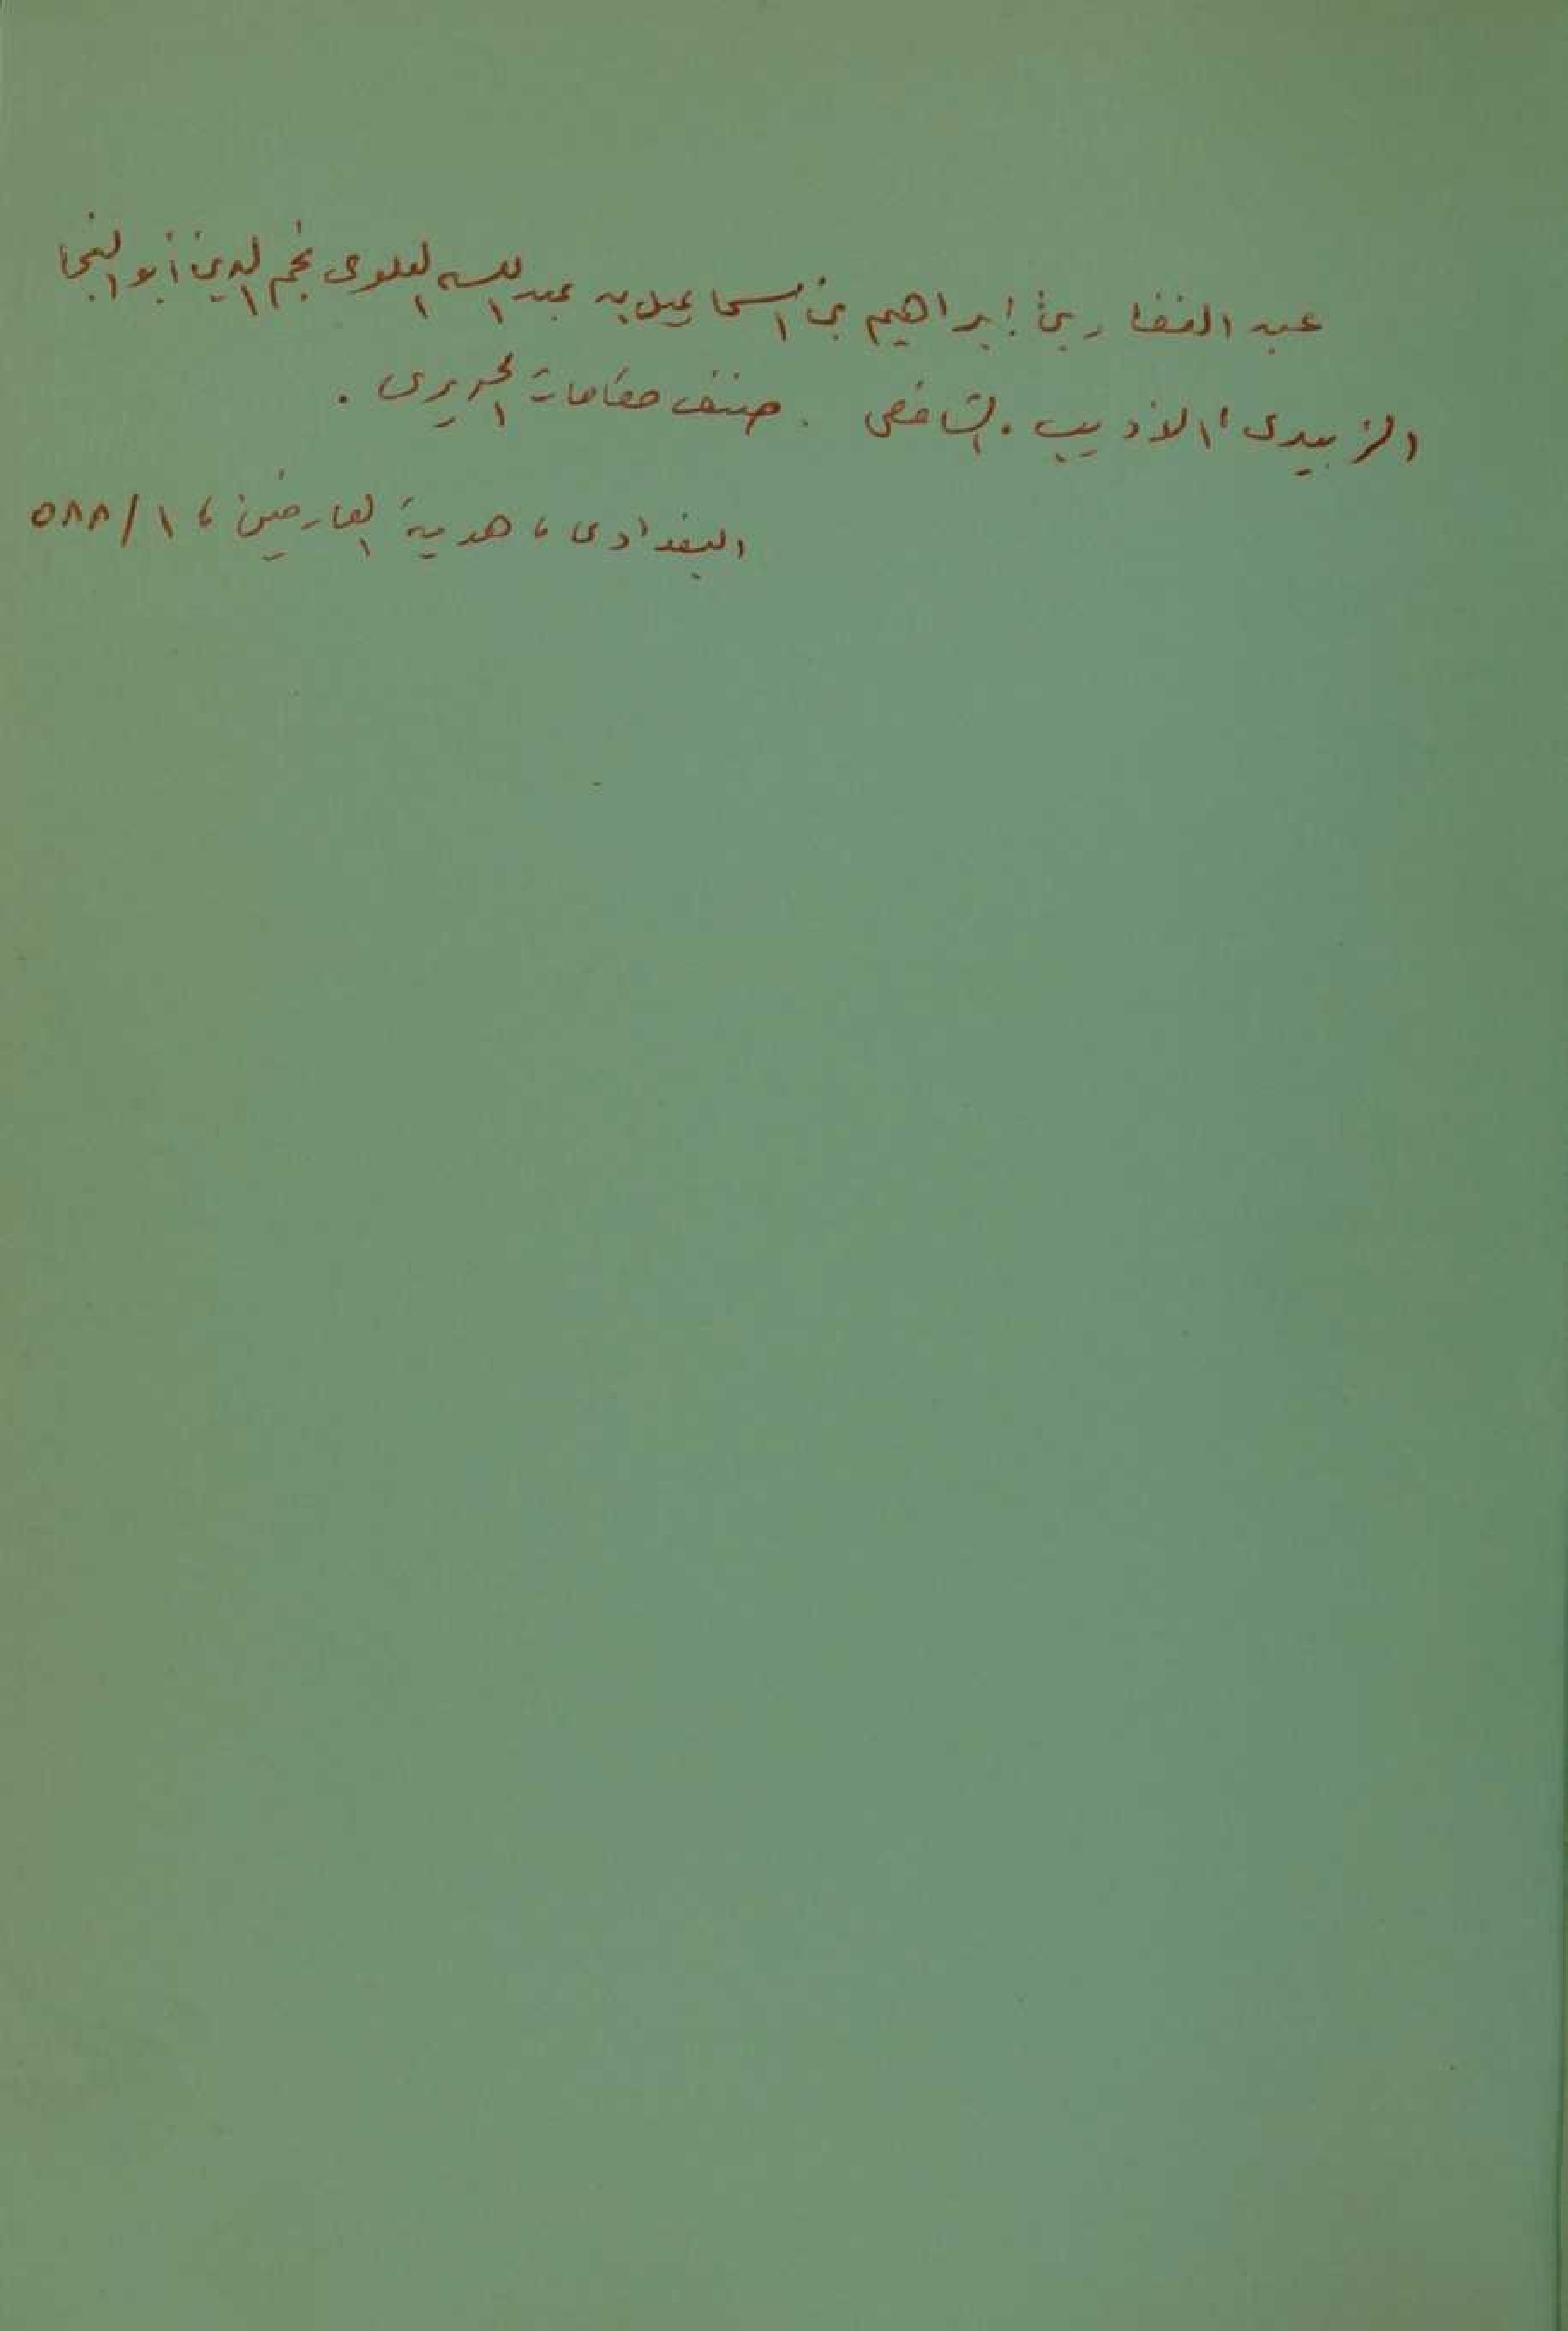 عبد الغفار بن إبراهيم بن اسماعيل بن عبد الله العلوى نجم الدين أبو النجا
الزبيدى الأديب . الشافعى . صنف مقامات الحريرى .
البغدادى ، هدية العارفين ، ١ / ٥٨٨